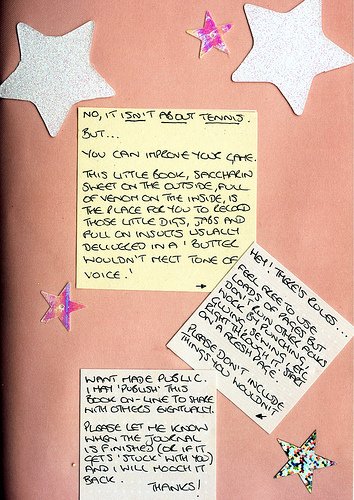 NO, IT ISN'T ABOUT TENNIS.
BUT...
YOU CAN IMPROVE YOUR GAME.
THIS LITTLE BOOK, SACCHARIN
SWEET ON THE OUTSIDE, FULL
OF VENOM ON THE INSIDE, IS
THE PLACE FOR YOU TO RECORD
THOSE LITTLE DIGS, JABS AND
FULL ON INSULTS USUALLY
DELIVERED IN A 'BUTTER
WOULDN'T MELT TONE OF
VOICE.'
HEY! THERE'S RULES...
FEEL FREE TO USE
LOADS OF PAGES BUT
DON'T RUIN OTHER FOLKS
WORK BY PUNCHING,
GLUING, OPENING, ETC
RIGHT THROUGH IT. START
ON A FRESH PAGE.
PLEASE DON'T INCLUDE
THINGS YOU WOULDN'T
WANT MADE PUBLIC.
I MAY 'PUBLISH' THIS
BOOK ON-LINE TO SHARE
WITH OTHERS EVENTUALLY.
PLEASE LET ME KNOW
WHEN THE JOURNAL
IS FINISHED (OR IF IT
GETS 'STUCK' WITH YOU)
AND I WILL MOOCH IT
BACK. THANKS!